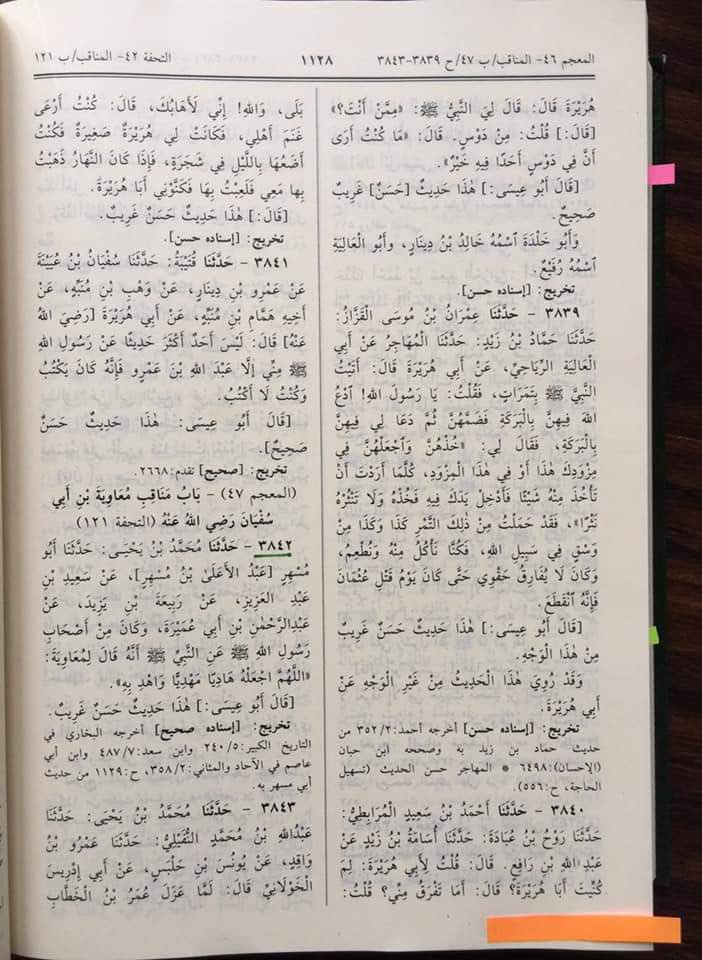 المعجم ٤٦- المناقب/ ب ٤٧/ ح ٣٨٣٩-٣٨٤٣
١١٢٨
التحفة ٤٢- المناقب/ ب ١٢١
هُرَيْرَةَ قَالَ: قَالَ لِيَ النَّبِيُّ ﷺ: «مِمَّنْ أَنْتَ؟»
[قَالَ:] قُلْتُ: مِنْ دَوْسٍ. قَالَ: «مَا كُنْتُ أَرَى
أَنَّ فِي دَوْسٍ أَحَدًا فِيهِ خَيْرٌ».
[قَالَ أَبُو عِيسَى:] هٰذَا حَدِيثٌ [حَسَنٌ] غَرِيبٌ
صَحِيحٌ.
وَأَبُو خَلْدَةَ ٱسْمُهُ خَالِدُ بْنُ دِينَارٍ، وَأَبُو الْعَالِيَةِ
ٱسْمُهُ رُفَيْعٌ.
تخريج: [إسناده حسن].
٣٨٣٩ - حَدَّثَنَا عِمْرَانُ بْنُ مُوسَى الْقَزَّازُ:
حَدَّثَنَا حَمَّادُ بْنُ زَيْدٍ: حَدَّثَنَا الْمُهَاجِرُ عَنْ أَبِي
الْعَالِيَةِ الرِّيَاحِيِّ، عَنْ أَبِي هُرَيْرَةَ قَالَ: أَتَيْتُ
النَّبِيَّ ﷺ بِتَمَرَاتٍ، فَقُلْتُ: يَا رَسُولَ اللهِ! ٱدْعُ
اللهَ فِيهِنَّ بِالْبَرَكَةِ فَضَمَّهُنَّ ثُمَّ دَعَا لِي فِيهِنَّ
بِالْبَرَكَةِ، فَقَالَ لِي: «خُذْهُنَّ وَٱجْعَلْهُنَّ فِي
مِزْوَدِكَ هٰذَا أَوْ فِي هٰذَا الْمِزْوَدِ، كُلَّمَا أَرَدْتَ أَنْ
تَأْخُذَ مِنْهُ شَيْئًا فَأَدْخِلْ يَدَكَ فِيهِ فَخُذْهُ وَلَا تَنْثُرْهُ
نَثْرًا»، فَقَدْ حَمَلْتُ مِنْ ذٰلِكَ التَّمْرِ كَذَا وَكَذَا مِنْ
وَسْقٍ فِي سَبِيلِ اللهِ، فَكُنَّا نَأْكُلُ مِنْهُ وَنُطْعِمُ،
وَكَانَ لَا يُفَارِقُ حَقْوِي حَتَّى كَانَ يَوْمُ قَتْلِ عُثْمَانَ
فَإِنَّهُ ٱنْقَطَعَ.
[قَالَ أَبُو عِيسَى:] هٰذَا حَدِيثٌ حَسَنٌ غَرِيبٌ
مِنْ هٰذَا الْوَجْهِ.
وَقَدْ رُوِيَ هٰذَا الْحَدِيثُ مِنْ غَيْرِ الْوَجْهِ عَنْ
أَبِي هُرَيْرَةَ.
تخريج: [إسناده حسن] أخرجه أحمد: ٣٥٢/٢ من
حديث حماد بن زيد به وصححه ابن حبان
(الإحسان): ٦٤٩٨ * المهاجر حسن الحديث (تسهيل
الحاجة، ح: ٥٥٦).
٣٨٤٠ - حَدَّثَنَا أَحْمَدُ بْنُ سَعِيدٍ الْمُرَابِطِيُّ:
حَدَّثَنَا رَوْحُ بْنُ عُبَادَةَ: حَدَّثَنَا أُسَامَةُ بْنُ زَيْدٍ عَنْ
عَبْدِ اللهِ بْنِ رَافِعٍ. قَالَ: قُلْتُ لِأَبِي هُرَيْرَةَ: لِمَ
كُنِّيتَ أَبَا هُرَيْرَةَ؟ قَالَ: أَمَا تَفْرَقُ مِنِّي؟ قُلْتُ:
بَلَى، وَاللهِ! إِنِّي لَأَهَابُكَ، قَالَ: كُنْتُ أَرْعَى
غَنَمَ أَهْلِي، فَكَانَتْ لِي هُرَيْرَةٌ صَغِيرَةٌ فَكُنْتُ
أَضَعُهَا بِاللَّيْلِ فِي شَجَرَةٍ، فَإِذَا كَانَ النَّهَارُ ذَهَبْتُ
بِهَا مَعِي فَلَعِبْتُ بِهَا فَكَنَّوْنِي أَبَا هُرَيْرَةَ.
[قَالَ:] هٰذَا حَدِيثٌ حَسَنٌ غَرِيبٌ.
تخريج: [إسناده حسن].
٣٨٤١ - حَدَّثَنَا قُتَيْبَةُ: حَدَّثَنَا سُفْيَانُ بْنُ عُيَيْنَةَ
عَنْ عَمْرِو بْنِ دِينَارٍ، عَنْ وَهْبِ بْنِ مُنَبِّهٍ، عَنْ
أَخِيهِ هَمَّامِ بْنِ مُنَبِّهٍ، عَنْ أَبِي هُرَيْرَةَ [رَضِيَ اللهُ
عَنْهُ] قَالَ: لَيْسَ أَحَدٌ أَكْثَرَ حَدِيثًا عَنْ رَسُولِ اللهِ
ﷺ مِنِّي إِلَّا عَبْدَ اللهِ بْنَ عَمْرٍو فَإِنَّهُ كَانَ يَكْتُبُ
وَكُنْتُ لَا أَكْتُبُ.
[قَالَ أَبُو عِيسَى: هٰذَا حَدِيثٌ حَسَنٌ
صَحِيحٌ].
تخريج: [صحيح] تقدم: ٢٦٦٨.
(المعجم ٤٧) - بَابُ مَنَاقِبِ مُعَاوِيَةَ بْنِ أَبِي
سُفْيَانَ رَضِيَ اللهُ عَنْهُ (التحفة ١٢١)
٣٨٤٢ - حَدَّثَنَا مُحَمَّدُ بْنُ يَحْيَى: حَدَّثَنَا أَبُو
مُسْهِرٍ [عَبْدُ الأَعْلَى بْنُ مُسْهِرٍ]، عَنْ سَعِيدِ بْنِ
عَبْدِ الْعَزِيزِ، عَنْ رَبِيعَةَ بْنِ يَزِيدَ، عَنْ
عَبْدِالرَّحْمٰنِ بْنِ أَبِي عُمَيْرَةَ، وَكَانَ مِنْ أَصْحَابِ
رَسُولِ اللهِ ﷺ عَنِ النَّبِيِّ ﷺ أَنَّهُ قَالَ لِمُعَاوِيَةَ:
«اللَّهُمَّ اجْعَلْهُ هَادِيًا مَهْدِيًّا وَاهْدِ بِهِ».
[قَالَ أَبُو عِيسَى:] هٰذَا حَدِيثٌ حَسَنٌ غَرِيبٌ.
تخريج: [إسناده صحيح] أخرجه البخاري في
التاريخ الكبير: ٢٤٠/٥ وابن سعد: ٤٨٧/٧ وابن أبي
عاصم في الآحاد والمثاني: ٣٥٨/٢، ح: ١١٢٩ من حديث
أبي مسهر به.
٣٨٤٣ - حَدَّثَنَا مُحَمَّدُ بْنُ يَحْيَى: حَدَّثَنَا
عَبْدُاللهِ بْنُ مُحَمَّدٍ النُّفَيْلِيُّ: حَدَّثَنَا عَمْرُو بْنُ
وَاقِدٍ، عَنْ يُونُسَ بْنِ حَلْبَسٍ، عَنْ أَبِي إِدْرِيسَ
الْخَوْلَانِيِّ قَالَ: لَمَّا عَزَلَ عُمَرُ بْنُ الْخَطَّابِ